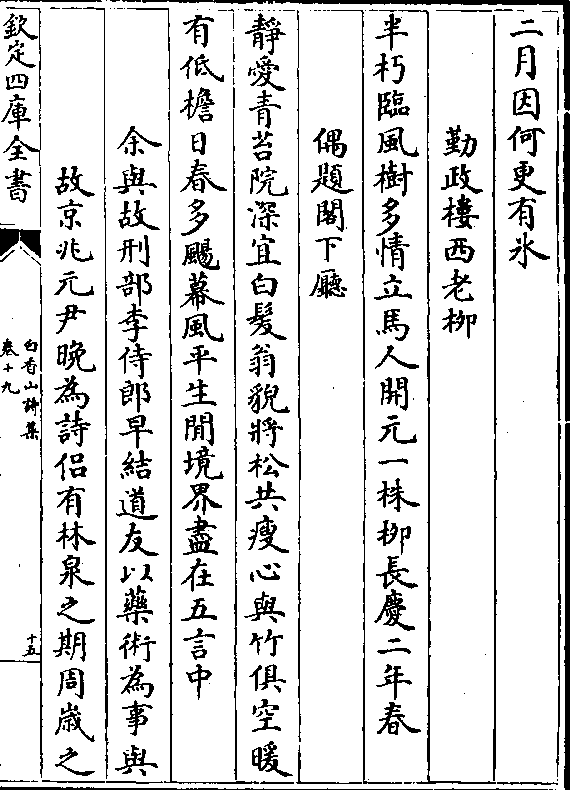 二月因何更有氷
勤政樓西老栁
半朽臨風樹多情立馬人開元一株栁長慶二年春
偶題閣下廳
靜愛青苔院深宜白髮翁貌將松共瘦心與竹俱空暖
有低檐日春多颺幕風平生閒境界盡在五言中
余與故刑部李侍郎早結道友以藥術為事與
故京兆元尹晩為詩侣有林泉之期周嵗之
欽定四庫全書
白香山詩集
卷十九
十五